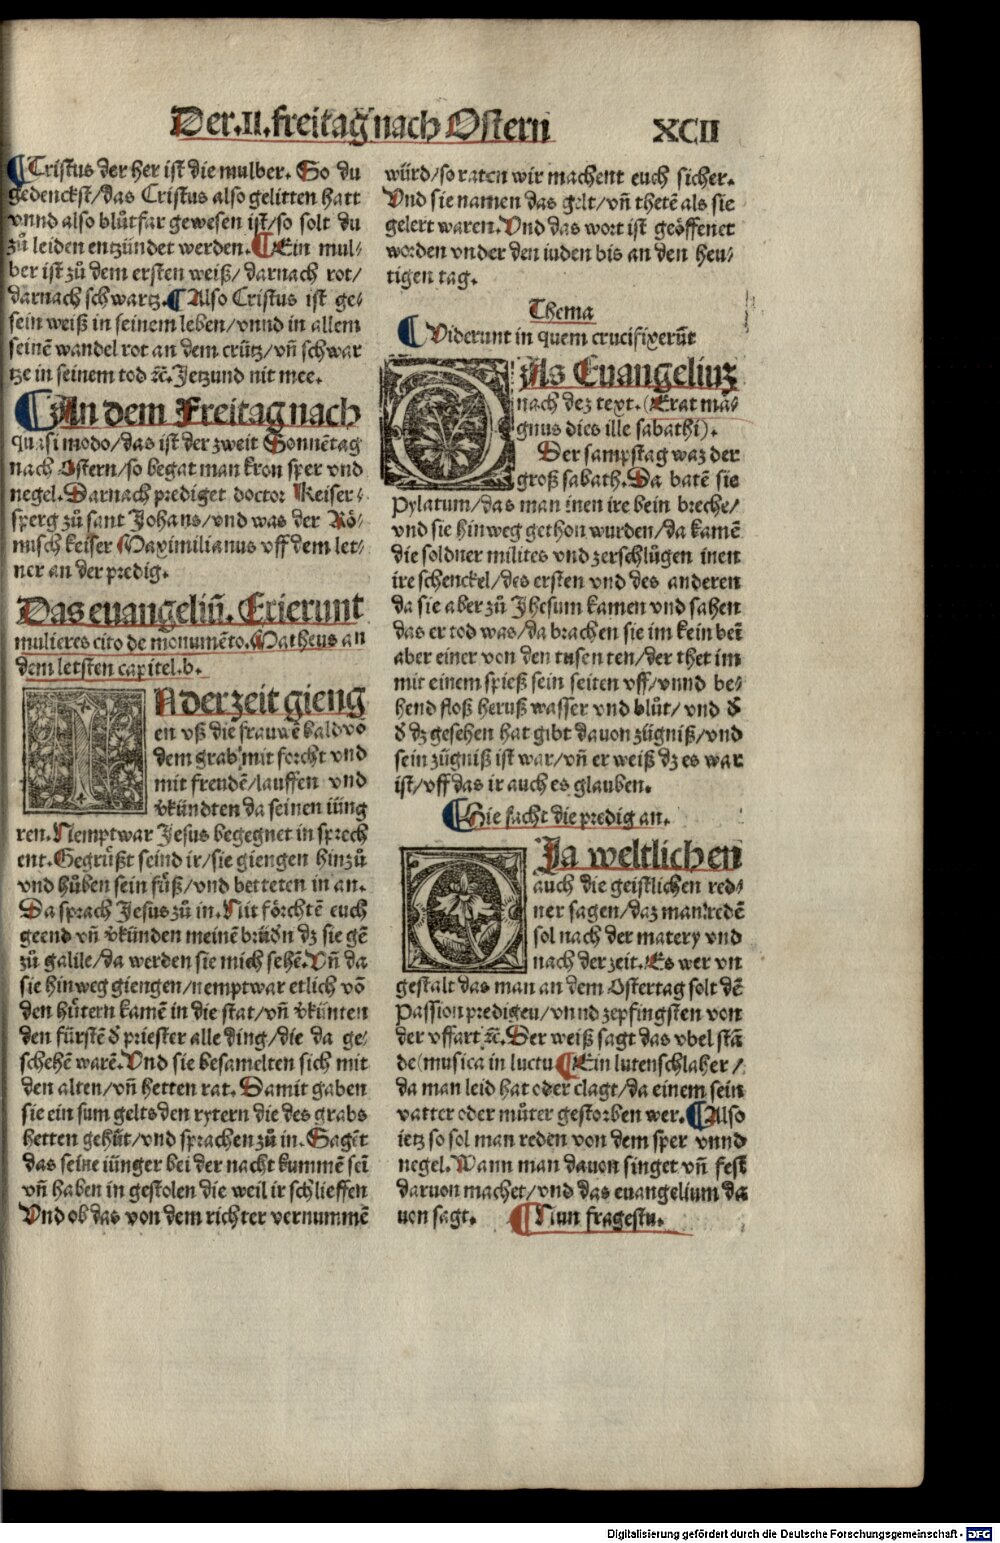 Der.II.freitag nach Ostern XCII
¶Cristus der her ist die mulber. So du
gedenckst/das Cristus also gelitten hatt
vnnd also blůtfar gewesen ist/so solt du
zů leiden entzündet werden. ¶Ein mul⸗
ber ist zů dem ersten weiß/darnach rot/
darnach schwartz.¶Also Cristus ist ge⸗
sein weiß in seinem leben/vnnd in allem
seinē wandel rot an dem crütz/vñ schwar
tze in seinem tod ꝛč. Jetzund nit mee.
¶An dem Freitag nach
quasi modo/das ist der zweit Sonnētag
nach Ostern/so begat man kron sper vnd
negel.Darnach prediget doctor Keiser⸗
sperg zů sant Johans/vnd was der Rö⸗
misch keiser Maximilianus vff dem let⸗
ner an der predig.
Das euangeliū. Exierunt
mulieres cito de monumēto.Matheus an
dem letsten capitel.b.
IN der zeit gieng
en vß die frauwē bald vō
dem grab mit forcht vnd
mit freudē/lauffen vnd
v̓kündten da seinen iüng
ren.Nemptwar Jesus begegnet in sprech
ent.Gegrüßt seind ir/sie giengen hinzů
vnd hůben sein füß/vnd betteten in an.
Da sprach Jesus zů in.Nit förchtē euch
geend vñ v̓künden meinē brůdn̄ dz sie gē
zů galile/da werden sie mich sehē.Vñ da
sie hinweg giengen/nemptwar etlich vō
den hütern kamē in die stat/vñ v̓künten
den fürstē d̓ priester alle ding/die da ge⸗
schehē warē.Vnd sie besamelten sich mit
den alten/vñ hetten rat.Damit gaben
sie ein sum gelts den rytern die des grabs
hetten gehůt/vnd sprachen zů in.Sagēt
das seine iünger bei der nacht kummē sei
vñ haben in gestolen die weil ir schlieffen
Vnd ob das von dem richter vernummē
würd/so raten wir machent euch sicher.
Vnd sie namen das gelt/vñ thetē als sie
gelert waren.Vnd das wort ist geöffenet
worden vnder den iuden bis an den heu⸗
tigen tag.
Thema
¶Viderunt in quem crucifixerūt
DAs Euangeliuꝫ
nach deꝫ text.(Erat ma⸗
gnus dies ille sabathi).
Der sampstag waꝫ der
groß sabath.Da batē sie
Pylatum/das man inen ire bein breche/
vnd sie hinweg gethon wurden/da kamē
die soldner milites vnd zerschlůgen inen
ire schenckel/des ersten vnd des anderen
da sie aber zů Jhesum kamen vnd sahen
das er tod was/da brachen sie im kein bei
aber einer von den tusenten/der thet im
mit einem spieß sein seiten vff/vnnd be⸗
hend floß heruß wasser vnd blůt/vnd d̓
d̓ dz gesehen hat gibt dauon zügniß/vnd
sein zügniß ist war/vñ er weiß dz es war
ist/vff das ir auch es glauben.
¶Hie facht die predig an.
DIa weltlichen
auch die geistlichen red⸗
ner sagen/daz man redē
sol nach der matery vnd
nach der zeit.Es wer vn
gestalt das man an dem Ostertag solt dē
Passion predigen/vnnd zepfingsten von
der vffart ꝛč.Der weiß sagt das vbel stā
de(musica in luctu ¶Ein lutenschlaher/
da man leid hat oder clagt/da einem sein
vatter oder můter gestorben wer.¶Also
ietz so sol man reden von dem sper vnnd
negel.Wann man dauon singet vñ fest
daruon machet/vnd das euangelium da
uon sagt. ¶Nun fragestu.
Digitalisierung gefördert durch die Deutsche Forschungsgemeinschaft - DFG